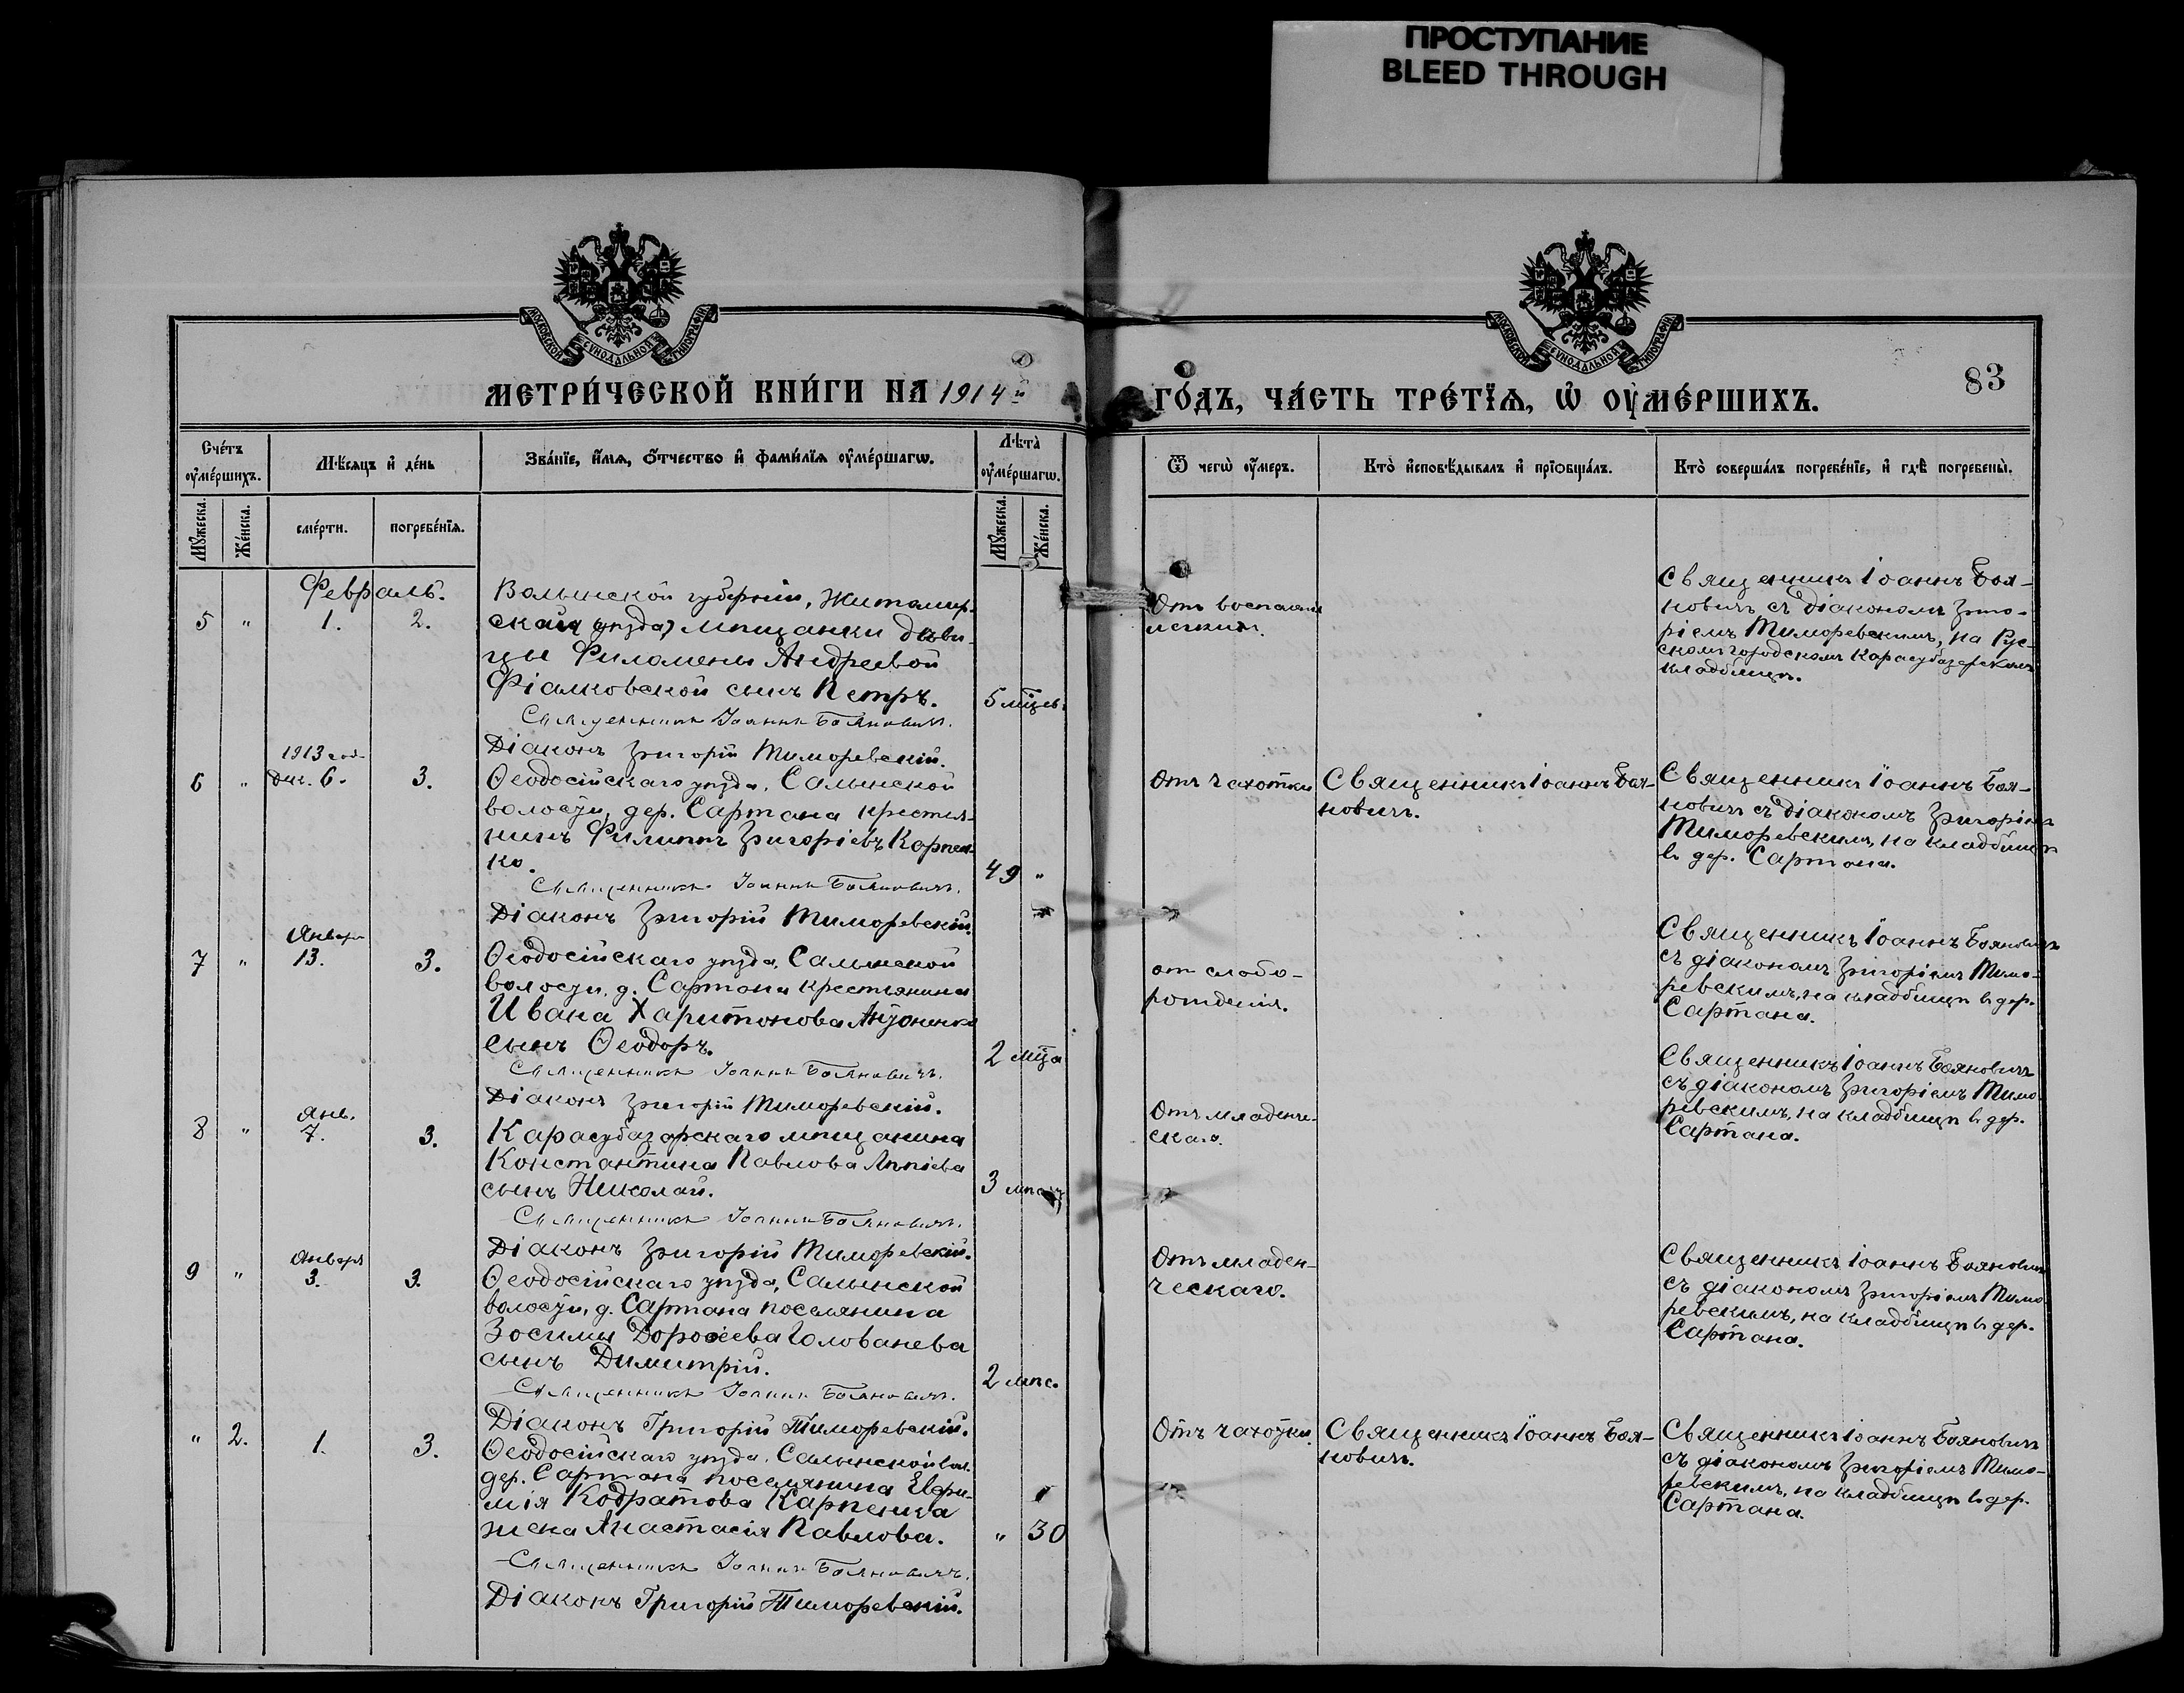 ПРОСТУПАНИЕ
BLEED THROUGH
МОСКОВСКОЙ СѴНОДАЛЬНОЙ ТИПОГРАФІИ
МОСКОВСКОЙ СѴНОДАЛЬНОЙ ТИПОГРАФІИ
МЕТРИ́ЧЕСКОЙ КНИ́ГИ НА 1914 й
ГО́ДЪ, ЧА́СТЬ ТРЕ́ТЇѦ, Ѡ҆ ОУ҆МЕ́РШИХЪ.
83
Сче́тъ оу҆ме́ршихъ.
Мѣ́сяцъ и҆ де́нь
Зва́нїе, и҆́мѧ, ѻ҆́тчество и҆ фами́лїѧ оу҆ме́ршагѡ.
Лѣ́та оу҆ме́ршагѡ.
Ѿ чегѡ̀ оу҆́меръ.
Кто̀ и҆сповѣ́дывалъ и҆ прїѻбща́лъ.
Кто̀ соверша́лъ погребе́нїе, и҆ гдѣ̀ погребены̀.
Мꙋ́жеска.
Же́нска.
сме́рти.
погребе́нїѧ.
Мꙋ́жеска.
Же́нска.
Февраль.
5 " 1. 2.
Волынской губерніи, Житомир-
скаго уѣзда, мѣщанки дѣви-
цы Филомены Андреевой
Фіалковской сынъ Петръ.
5 мѣцевъ
Священникъ Іоаннъ Бояновичъ.
Діаконъ Григорій Тиморевскій.
Отъ воспаленія
легкихъ.
Священникъ Іоаннъ Боя-
новичъ съ діакономъ Григо-
ріемъ Тиморевскимъ, на Рус-
скомъ городскомъ Карасубазарскомъ
кладбищѣ.
1913 год.
6 " Дек. 6. 3.
Ѳеодосійскаго уѣзда, Салынской
волости, дер. Сартана крестья-
нинъ Филиппъ Григоріевъ Карпен-
ко.
49 "
Священникъ Іоаннъ Бояновичъ.
Діаконъ Григорій Тиморевскій.
Отъ чахотки
Священникъ Іоаннъ Боя-
новичъ.
Священникъ Іоаннъ Боя-
новичъ съ діакономъ Григоріемъ
Тиморевскимъ, на кладбищѣ
въ дер. Сартана.
Января
7 " 13. 3.
Ѳеодосійскаго уѣзда, Салынской
волости, д. Сартана крестьянина
Ивана Харитонова
сынъ Ѳеодоръ.
2 мѣца
Священникъ Іоаннъ Бояновичъ.
Діаконъ Григорій Тиморевскій.
от слабо-
рожденія.
Священникъ Іоаннъ Бояновичъ
съ діакономъ Григоріемъ Тимо-
ревскимъ, на кладбищѣ въ дер.
Сартана.
Янв.
8 " 7. 3.
Карасубазарскаго мѣщанина
Константина Павлова Аппіева
сынъ Николай.
3 мѣс.
Священникъ Іоаннъ Бояновичъ.
Діаконъ Григорій Тиморевскій.
Отъ младенче-
скаго.
Священникъ Іоаннъ Бояновичъ
съ діакономъ Григоріемъ Тимо-
ревскимъ, на кладбищѣ въ дер.
Сартана.
Января
9 " 3. 3.
Ѳеодосійскаго уѣзда, Салынской
волости, д. Сартана поселянина
Зосимы Дороѳеева Голованева
сынъ Димитрій.
2 мѣс.
Священникъ Іоаннъ Бояновичъ.
Діаконъ Григорій Тиморевскій.
Отъ младен-
ческаго.
Священникъ Іоаннъ Бояновичъ
съ діакономъ Григоріемъ Тимо-
ревскимъ, на кладбищѣ въ дер.
Сартана.
" 2. 1. 3.
Ѳеодосійскаго уѣзда, Салынской вол.
дер. Сартана поселянина Евфи-
мія Кодратова Карпенка
жена Анастасія Павлова.
" 30
Священникъ Іоаннъ Бояновичъ.
Діаконъ Григорій Тиморевскій.
Отъ чахотки.
Священникъ Іоаннъ Боя-
новичъ.
Священникъ Іоаннъ Бояновичъ
съ діакономъ Григоріемъ Тимо-
ревскимъ, на кладбищѣ въ дер.
Сартана.